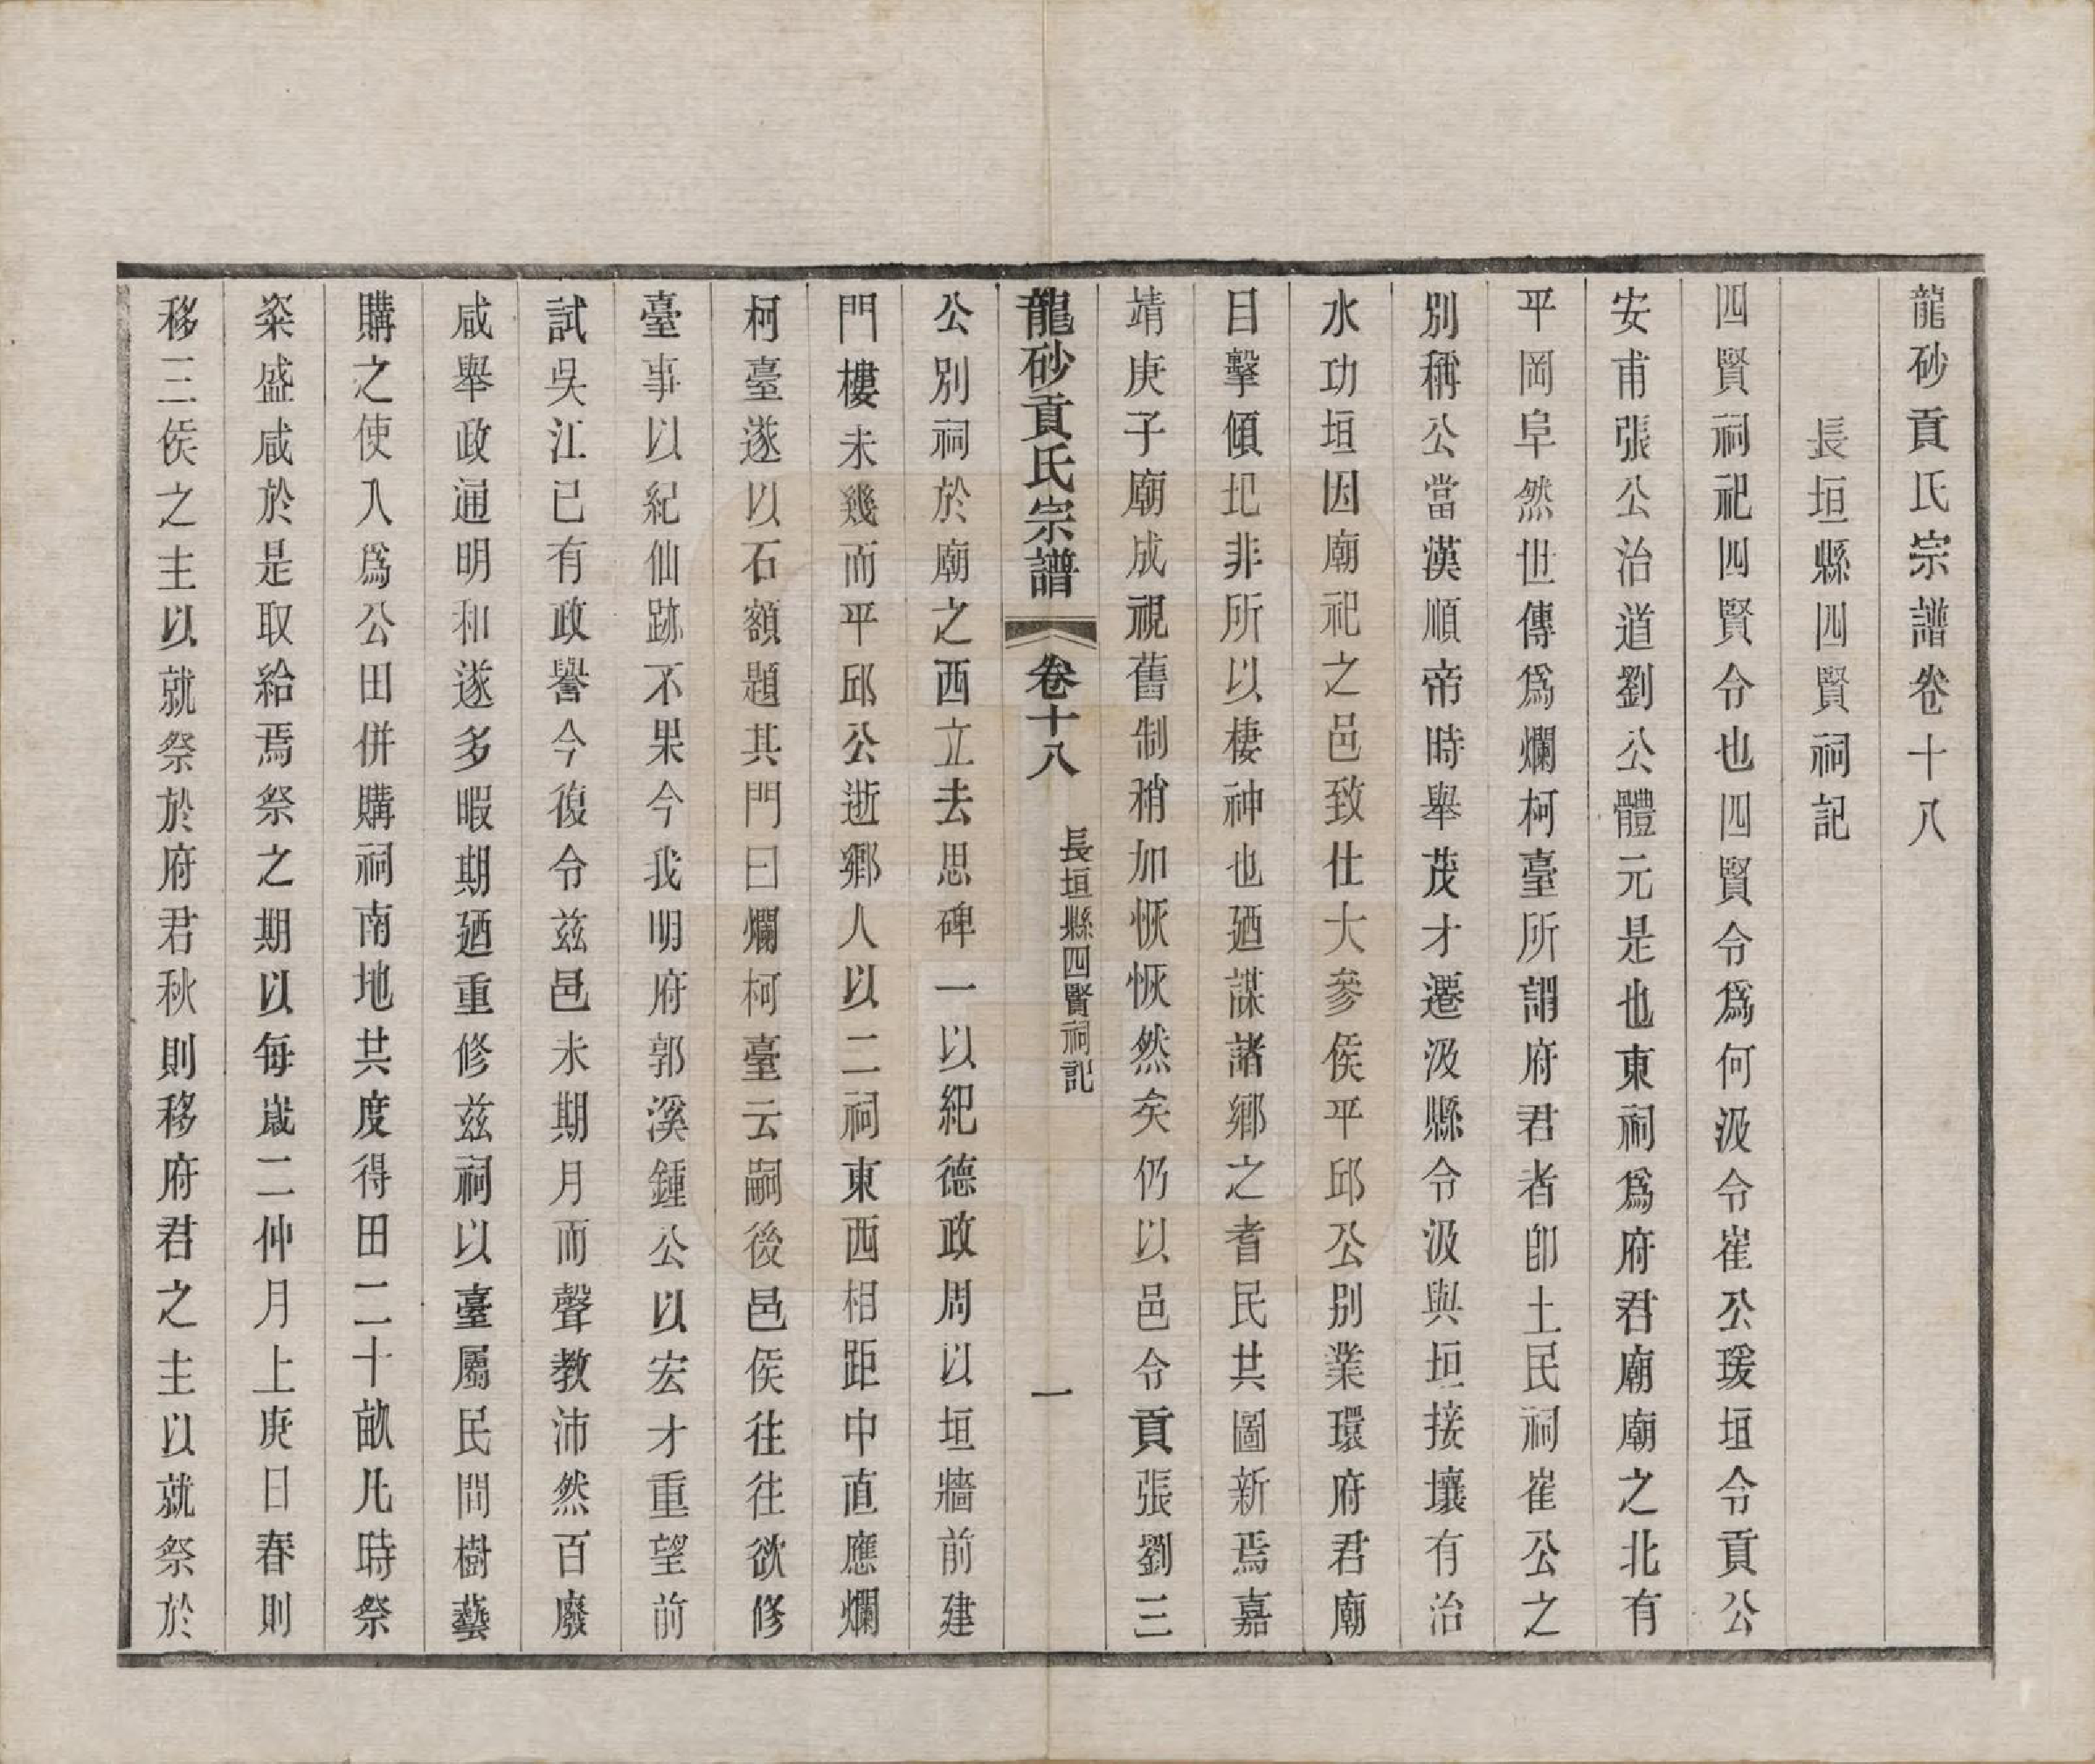 龍砂貢氏宗譜卷十八
長垣縣四賢祠記
四賢祠祀四賢令也四賢令爲何汲令崔公瑗垣令貢公
安甫張公治道劉公體元是也東祠爲府君廟廟之北有
平岡阜然世傳爲爛柯臺所謂府君者卽土民祠崔公之
別稱公當漢順帝時舉茂才遷汲縣令汲與垣接壤有治
水功垣因廟祀之邑致仕大參侯平邱公別業環府君廟
目擊傾圯非所以棲神也廼謀諸鄉之耆民共圖新焉嘉
靖庚子廟成視舊制稍加恢恢然矣仍以邑令貢張劉三
龍砂貢氏宗譜
卷十八
長垣縣四賢祠記
一
公別祠於廟之西立去思碑一以紀德政周以垣牆前建
門樓未幾而平邱公逝鄉人以二祠東西相距中直應爛
柯臺遂以石額題其門曰爛柯臺云嗣後邑侯往往欲修
臺事以紀仙跡不果今我明府郭溪鍾公以宏才重望前
試吳江已有政譽今復令兹邑未期月而聲教沛然百廢
咸舉政通明和遂多暇期廼重修兹祠以臺屬民間樹藝
購之使入爲公田併購祠南地共度得田二十畝凡時祭
粢盛咸於是取給焉祭之期以每歲二仲月上庚日春則
移三侯之主以就祭於府君秋則移府君之主以就祭於